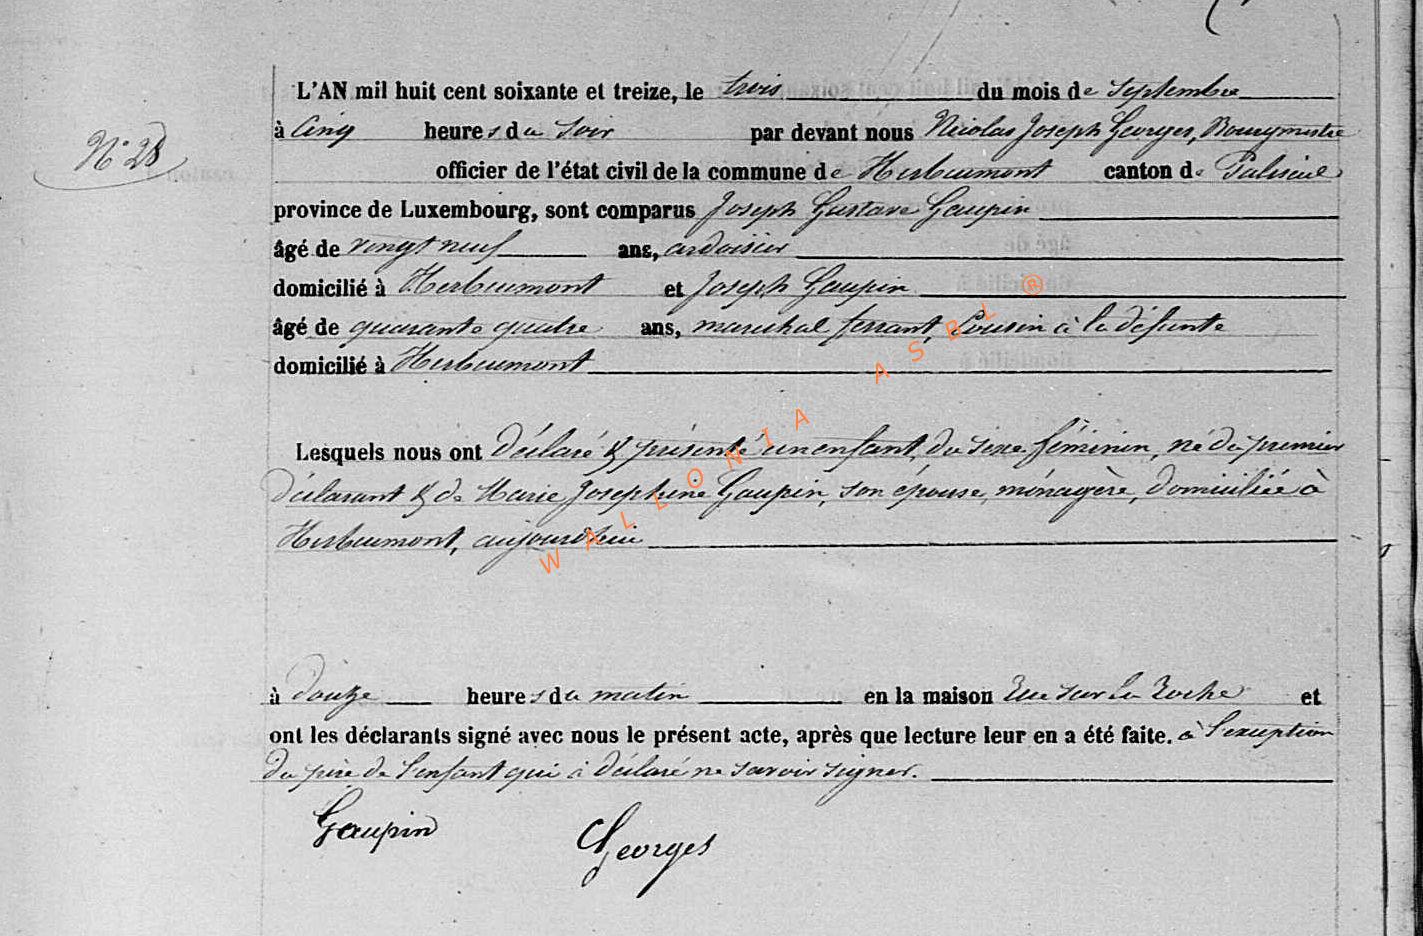 L'AN mil huit cent soixante et treize, le trois du mois de Septembre
à Cinq heures du Soir par devant nous Nicolas Joseph Georges, Bourgmestre
N° 28
officier de l'état civil de la commune de Herbeumont canton de Paliseul
province de Luxembourg, sont comparus Joseph Gustave Gaupin
âgé de vingt neuf ans, ardoisier
domicilié à Herbeumont et Joseph Gaupin
âgé de quarante quatre ans, marechal ferrant, Cousin à la défunte
domicilié à Herbeumont
Lesquels nous ont Déclaré & présenté un enfant du sexe féminin, né du premier
déclarant & de Marie Josephine Gaupin, son épouse, ménagère, domiciliée à
Herbeumont, aujourd'hui
WALLONIA ASBL ®
à douze heures du matin en la maison Rue sur la Roche et
ont les déclarants signé avec nous le présent acte, après que lecture leur en a été faite. à l'exception
du père de l'enfant qui a déclaré ne savoir signer.
Gaupin Georges